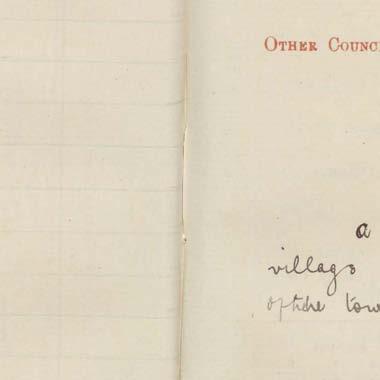 OTHER COUNC
a
village
of the tow